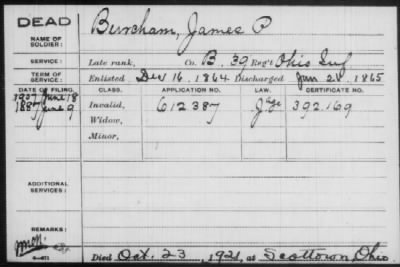 DEAD
NAME OF SOLDIER: Burcham, James P
SERVICE: Late rank, Co. B, 39 Reg't Ohio Inf
TERM OF SERVICE: Enlisted Dec 16, 1864 Discharged Jun 28, 1865
DATE OF FILING. CLASS. APPLICATION NO. LAW. CERTIFICATE NO.
June 18
1887 June 9 Invalid, 612387 392.169
Widow,
Minor,
ADDITIONAL SERVICES:
REMARKS:
Died Oct. 23, 1921, at Scottown, Ohio